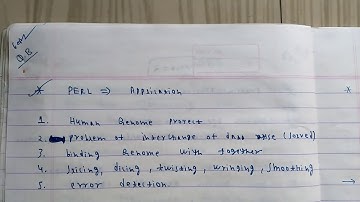 Q.B
* PERL ⇒ Application *
1. Human Genome Project
2. problem of interchange of data (solved)
3. binding Genome with together
4. slicing, dicing, twisting, wringing, smoothing
5. error detection
→